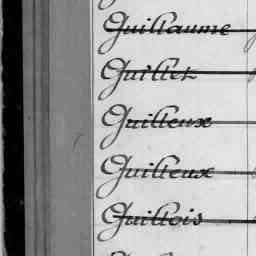 Guillaume
Guillet
Guilleux
Guilleux
Guillois